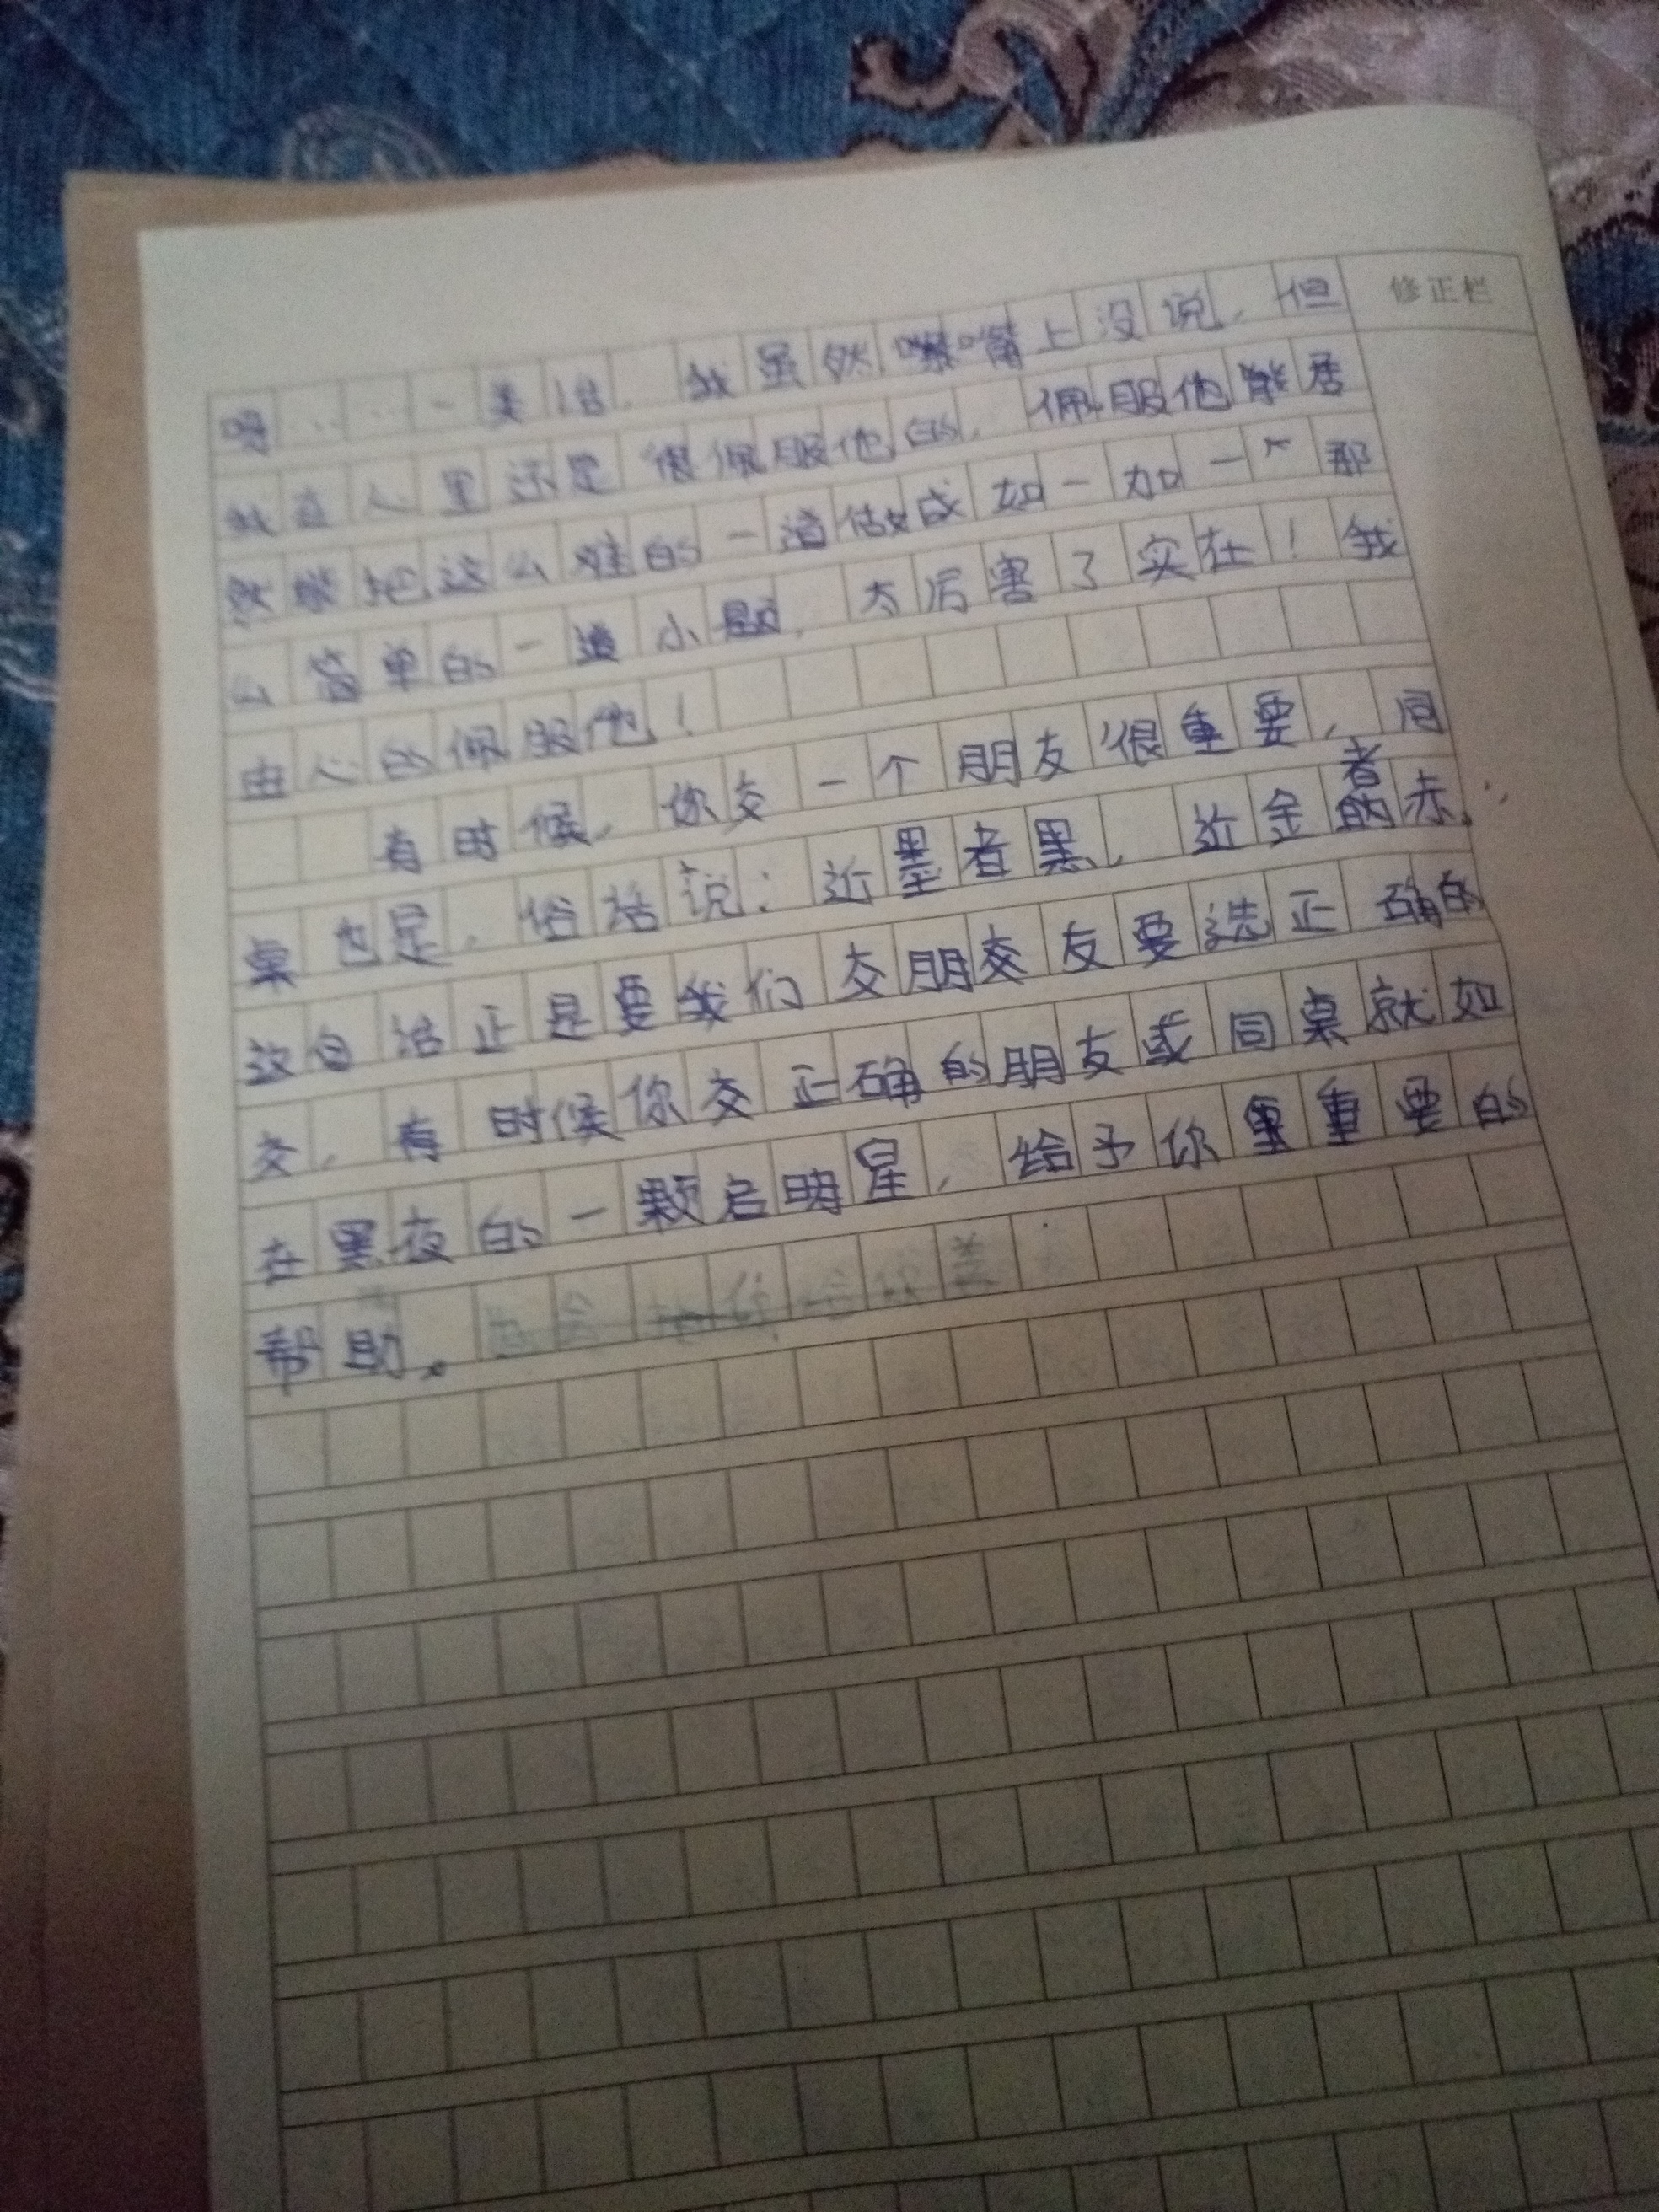 修正栏
呀……一类话，我虽然嘴上没说，但
我在心里还是很佩服他的，佩服他能居
然能把这么难的一道做成如一加一那
么简单的一道小题，太厉害了实在！我
由心的佩服他！
有时候，你交一个朋友很重要，同
桌也是，俗话说：近墨者黑，近金者赤，
这句话正是要我们交朋交友要选正确的
交，有时候你交正确的朋友或同桌就如
在黑夜的一颗启明星，给予你重重要的
帮助。